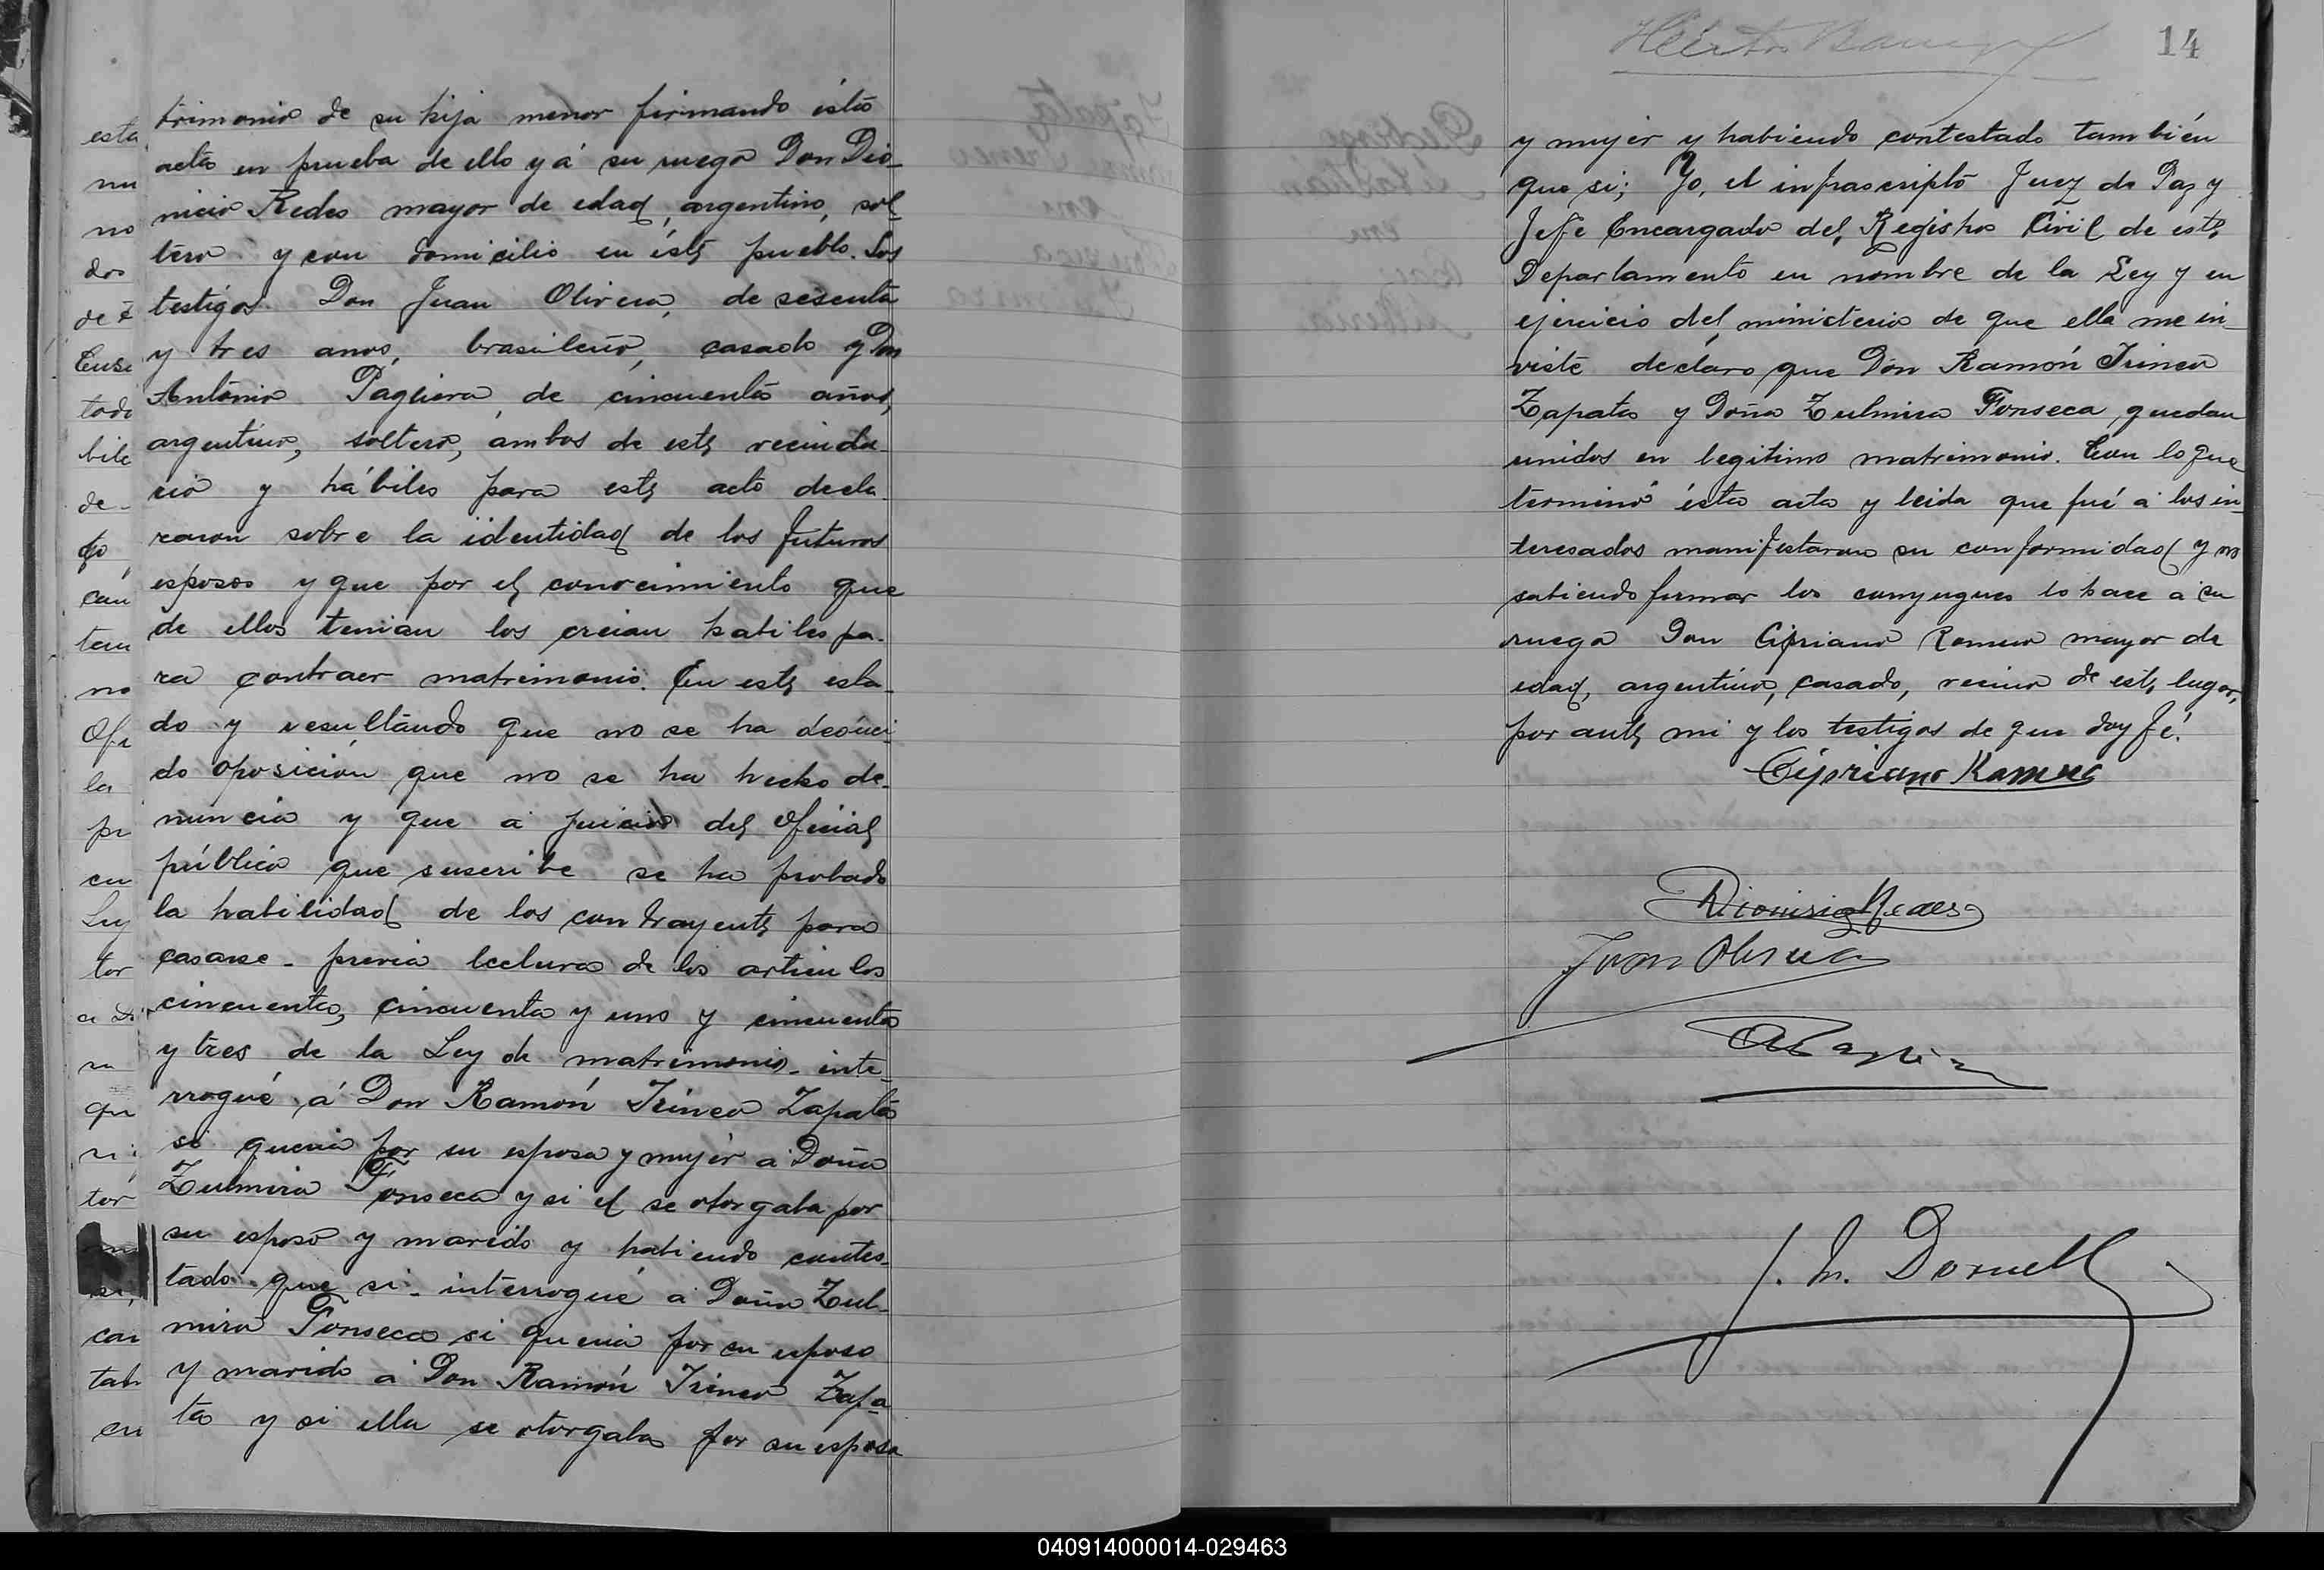 trimonio de su hija menor firmando ésta
acta en prueba de ello y á su ruego Don Dio-
nicio Redes mayor de edad, argentino, sol-
tero y con domicilio en éste pueblo. Los
testigos Don Juan Olivera, de sesenta
y tres años, brasileño, casado y Don
Antonio Pagliera, de cincuenta años,
argentino, soltero, ambos de este vecinda-
rio y hábiles para este acto decla-
raron sobre la identidad de los futuros
esposos y que por el conocimiento que
de ellos tenian los creian habiles pa-
ra contraer matrimonio. En este esta-
do y resultando que no se ha deduci-
do oposición que no se ha hecho de-
nuncia y que a juicio del oficial
público que suscribe se ha probado
la habilidad de los contrayente para
casarse - previa lectura de los articulos
cincuenta, cincuenta y uno y cincuenta
y tres de la Ley de matrimonio - inte-
rrogué á Don Ramón Irineo Zapata
si queria por su esposa y mujer a Doña
Zulmira Fonseca y si el se otorgaba por
su esposo y marido y habiendo contes-
tado que si - interrogué a Doña Zul-
mira Fonseca si queria por su esposo
y marido a Don Ramón Irineo Zapa-
ta y si ella se otorgaba por su esposa
14
y mujer y habiendo contestado también
que si; Yo, el infrascripto Juez de Paz y
Jefe Encargado del Registro Civil de este
Departamento en nombre de la Ley y en
ejercicio del ministerio de que ella me in-
viste declaro que Don Ramón Irineo
Zapata y Doña Zulmira Fonseca quedan
unidos en legitimo matrimonio. Con lo que
terminó ésta acta y leida que fué a los in-
teresados manifestaron su conformidad y no
sabiendo firmar los conyugues lo hace a su
ruego Don Cipriano Romero mayor de
edad, argentino, casado, vecino de este lugar,
por ante mi y los testigos de que doy fé.
Cipriano Romero
Dionisio Redes
Juan Olivera
J. M. Dornell
040914000014-029463